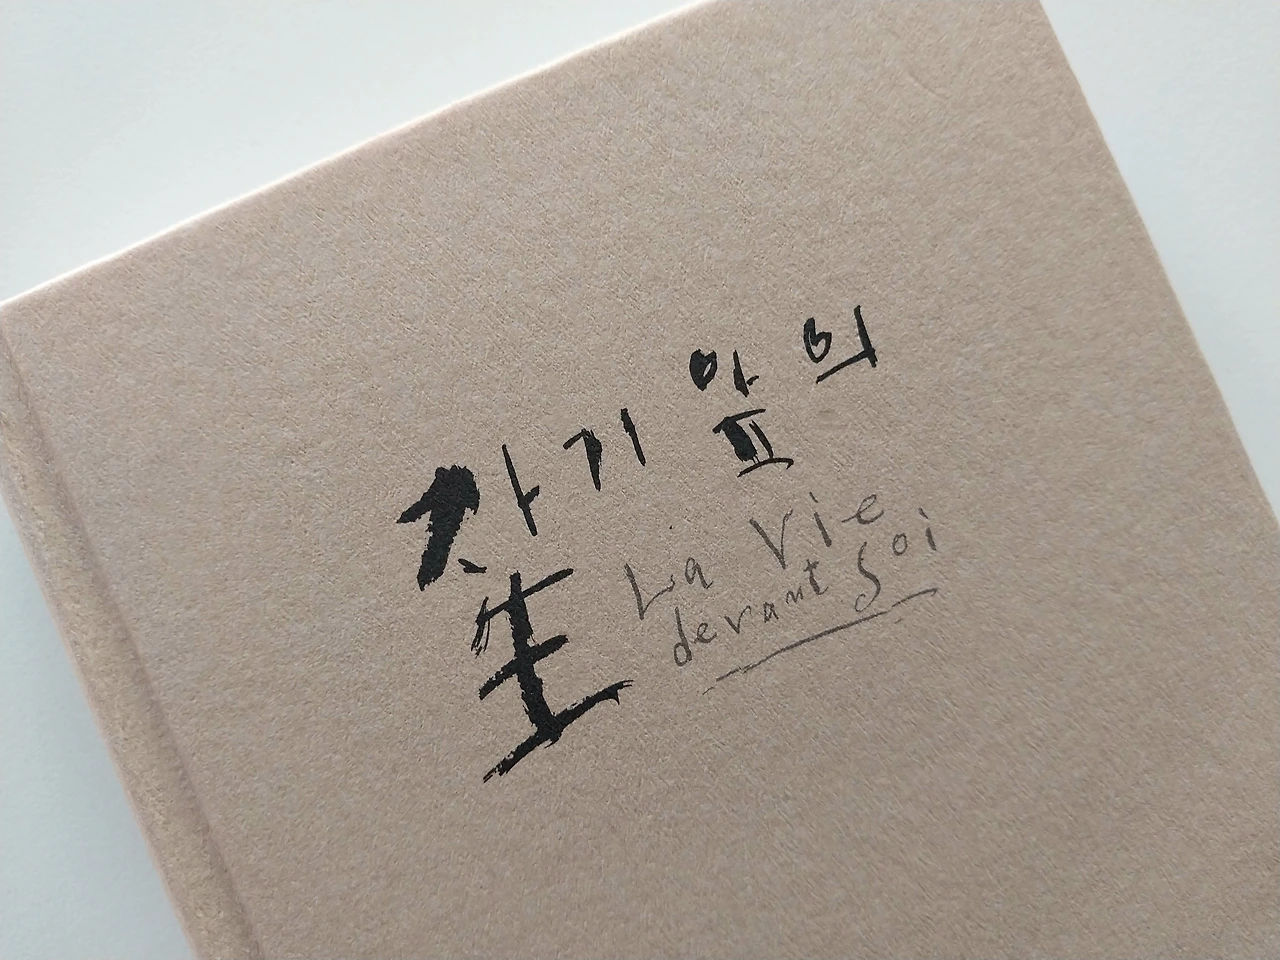 자기 앞의
生
La Vie
devant Soi